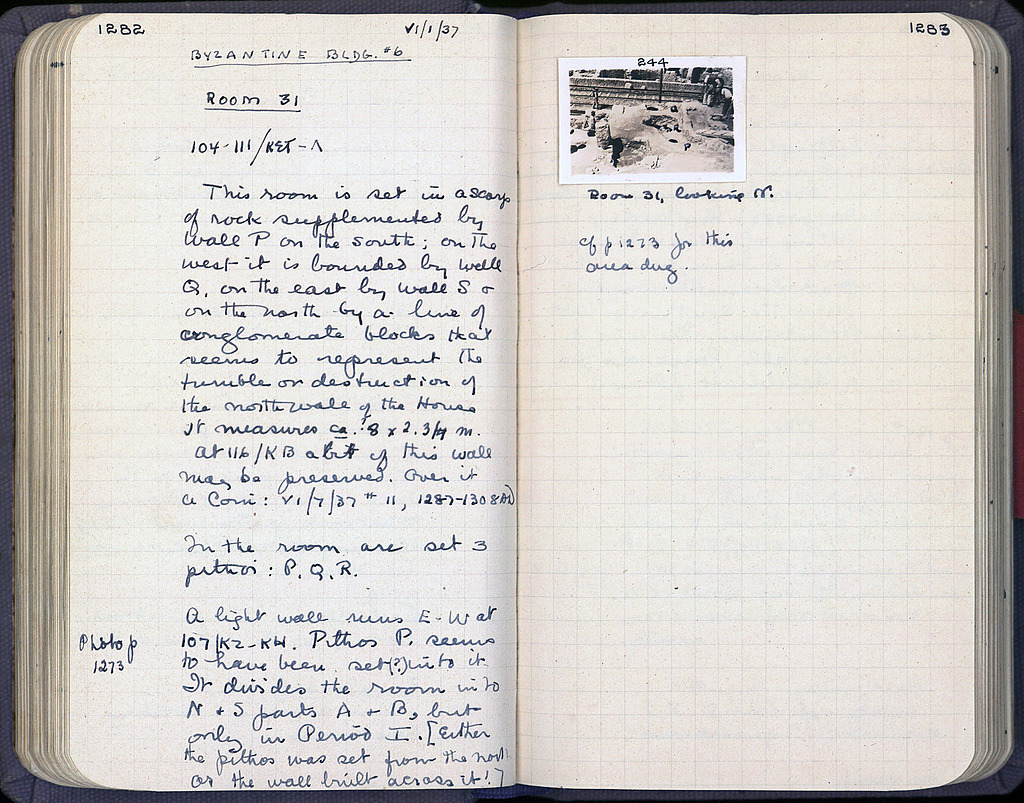 1282
VI/1/37
BYZANTINE BLDG. #6
ROOM 31
104-111/KET-Λ
This room is set in a scarp
of rock supplemented by
wall P on the south; on the
west it is bounded by wall
Q, on the east by wall S &
on the north by a line of
conglomerate blocks that
seems to represent the
tumble or destruction of
the north wall of the House
It measures ca. 8 x 2.3/4 m.
At 116/KB a bit of this wall
may be preserved. Over it
a Coin: VI/7/37 # 11, 1287-1308 AD
In the room are set 3
pithoi: P. Q. R.
Photo p
1273
A light wall runs E-W at
107/KZ-KH. Pithos P. seems
to have been set(?) into it.
It divides the room into
N + S parts A + B, but
only in Period I. [Either
the pithos was set from the north
or the wall built across it!]
1283
244
P
Room 31, looking N.
cf p 1273 for this
area dug.